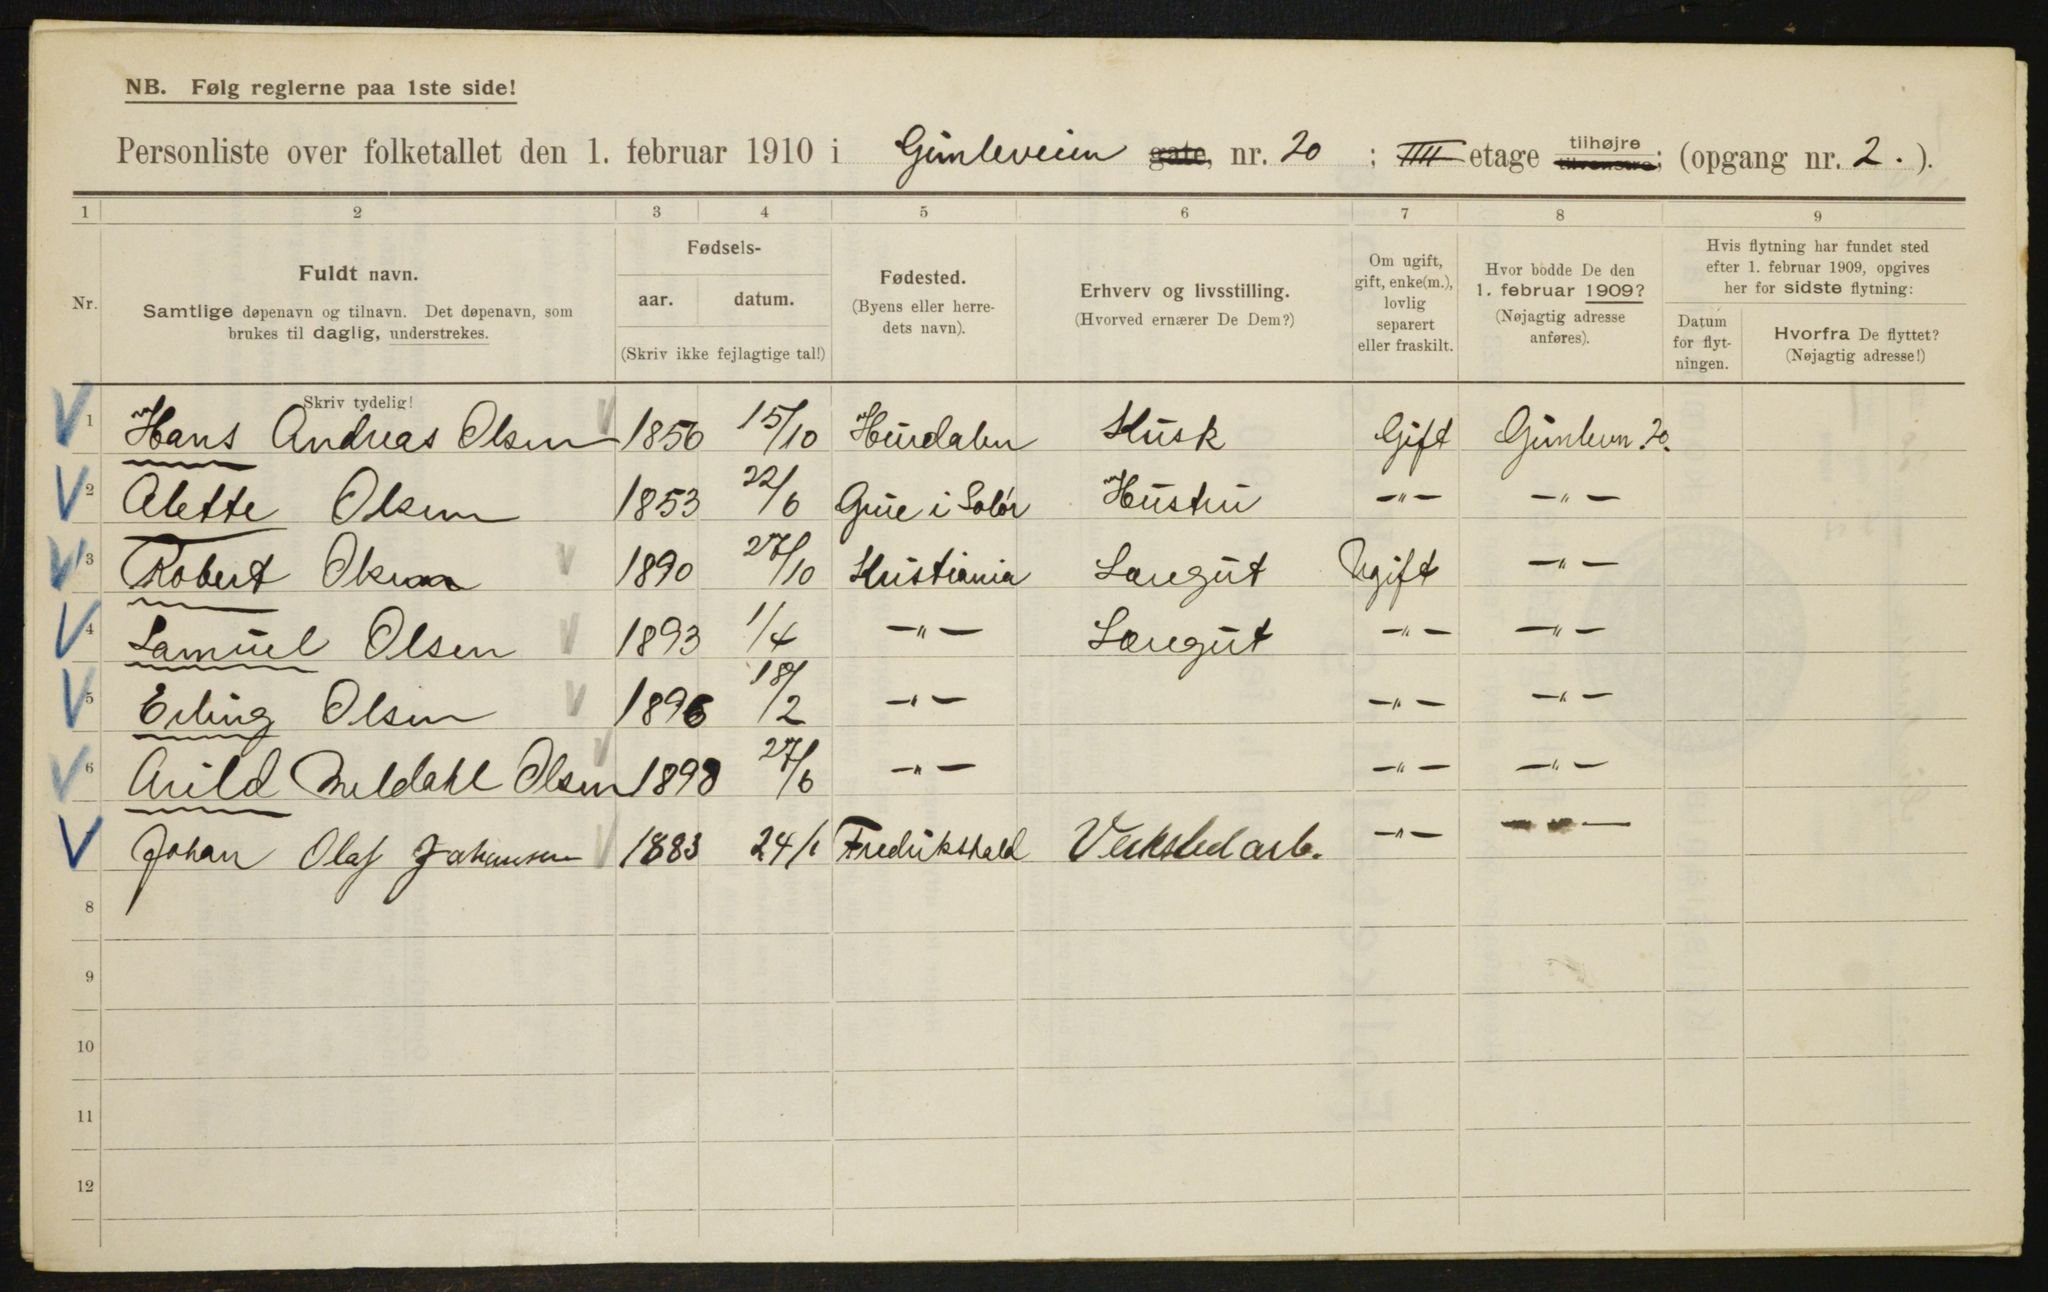 NB. Følg reglerne paa 1ste side!
Personliste over folketallet den 1. februar 1910 i Gimleveien gate, nr. 20 ; IIII etage tilhøjre tilvenstre; (opgang nr. 2. ).
1 2 3 4 5 6 7 8 9
Nr. Fuldt navn. Samtlige døpenavn og tilnavn. Det døpenavn, som brukes til daglig, understrekes.
Fødsels- aar. datum. (Skriv ikke fejlagtige tal!)
Fødested. (Byens eller herredets navn).
Erhverv og livsstilling. (Hvorved ernærer De Dem?)
Om ugift, gift, enke(m.), lovlig separert eller fraskilt.
Hvor bodde De den 1. februar 1909? (Nøjagtig adresse anføres).
Hvis flytning har fundet sted efter 1. februar 1909, opgives her for sidste flytning:
Datum for flytningen. Hvorfra De flyttet? (Nøjagtig adresse!)
Skriv tydelig!
1 Hans Andreas Olsen 1850 15/10 Hurdalen Kusk Gift Gimlevn. 20.
2 Alette Olsen 1853 22/6 Grue i Solør Hustru —"— —"—
3 Robert Olsen 1890 27/10 Kristiania Læregut Ugift —"—
4 Samuel Olsen 1893 1/4 —"— Læregut —"— —"—
5 Erling Olsen 1896 18/2 —"— —"— —"—
6 Arild Meldahl Olsen 1898 27/6 —"— —"— —"—
Johan Olaf Johansen 1883 24/1 Fredrikshald Verkstedarb. —"— —"—
8
9
10
11
12